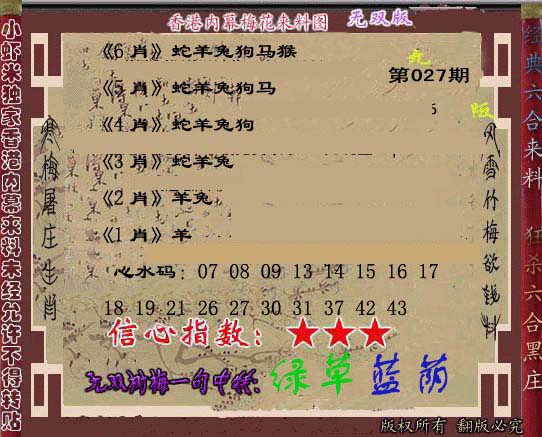 香港内幕梅花来料图 无双版
第027期
《6 肖》蛇羊兔狗马猴
《5 肖》蛇羊兔狗马
《4 肖》蛇羊兔狗
《3 肖》蛇羊兔
《2 肖》羊兔
《1 肖》羊
心水码: 07 08 09 13 14 15 16 17
18 19 21 26 27 30 31 37 42 43
信心指数: ★★★
绿草蓝荫
版权所有 翻版必究
小虾米独家香港内幕来料未经允许不得转贴
寒梅屠庄生肖
风雪竹梅欲钱料
经典六合来料 狂杀六合黑庄